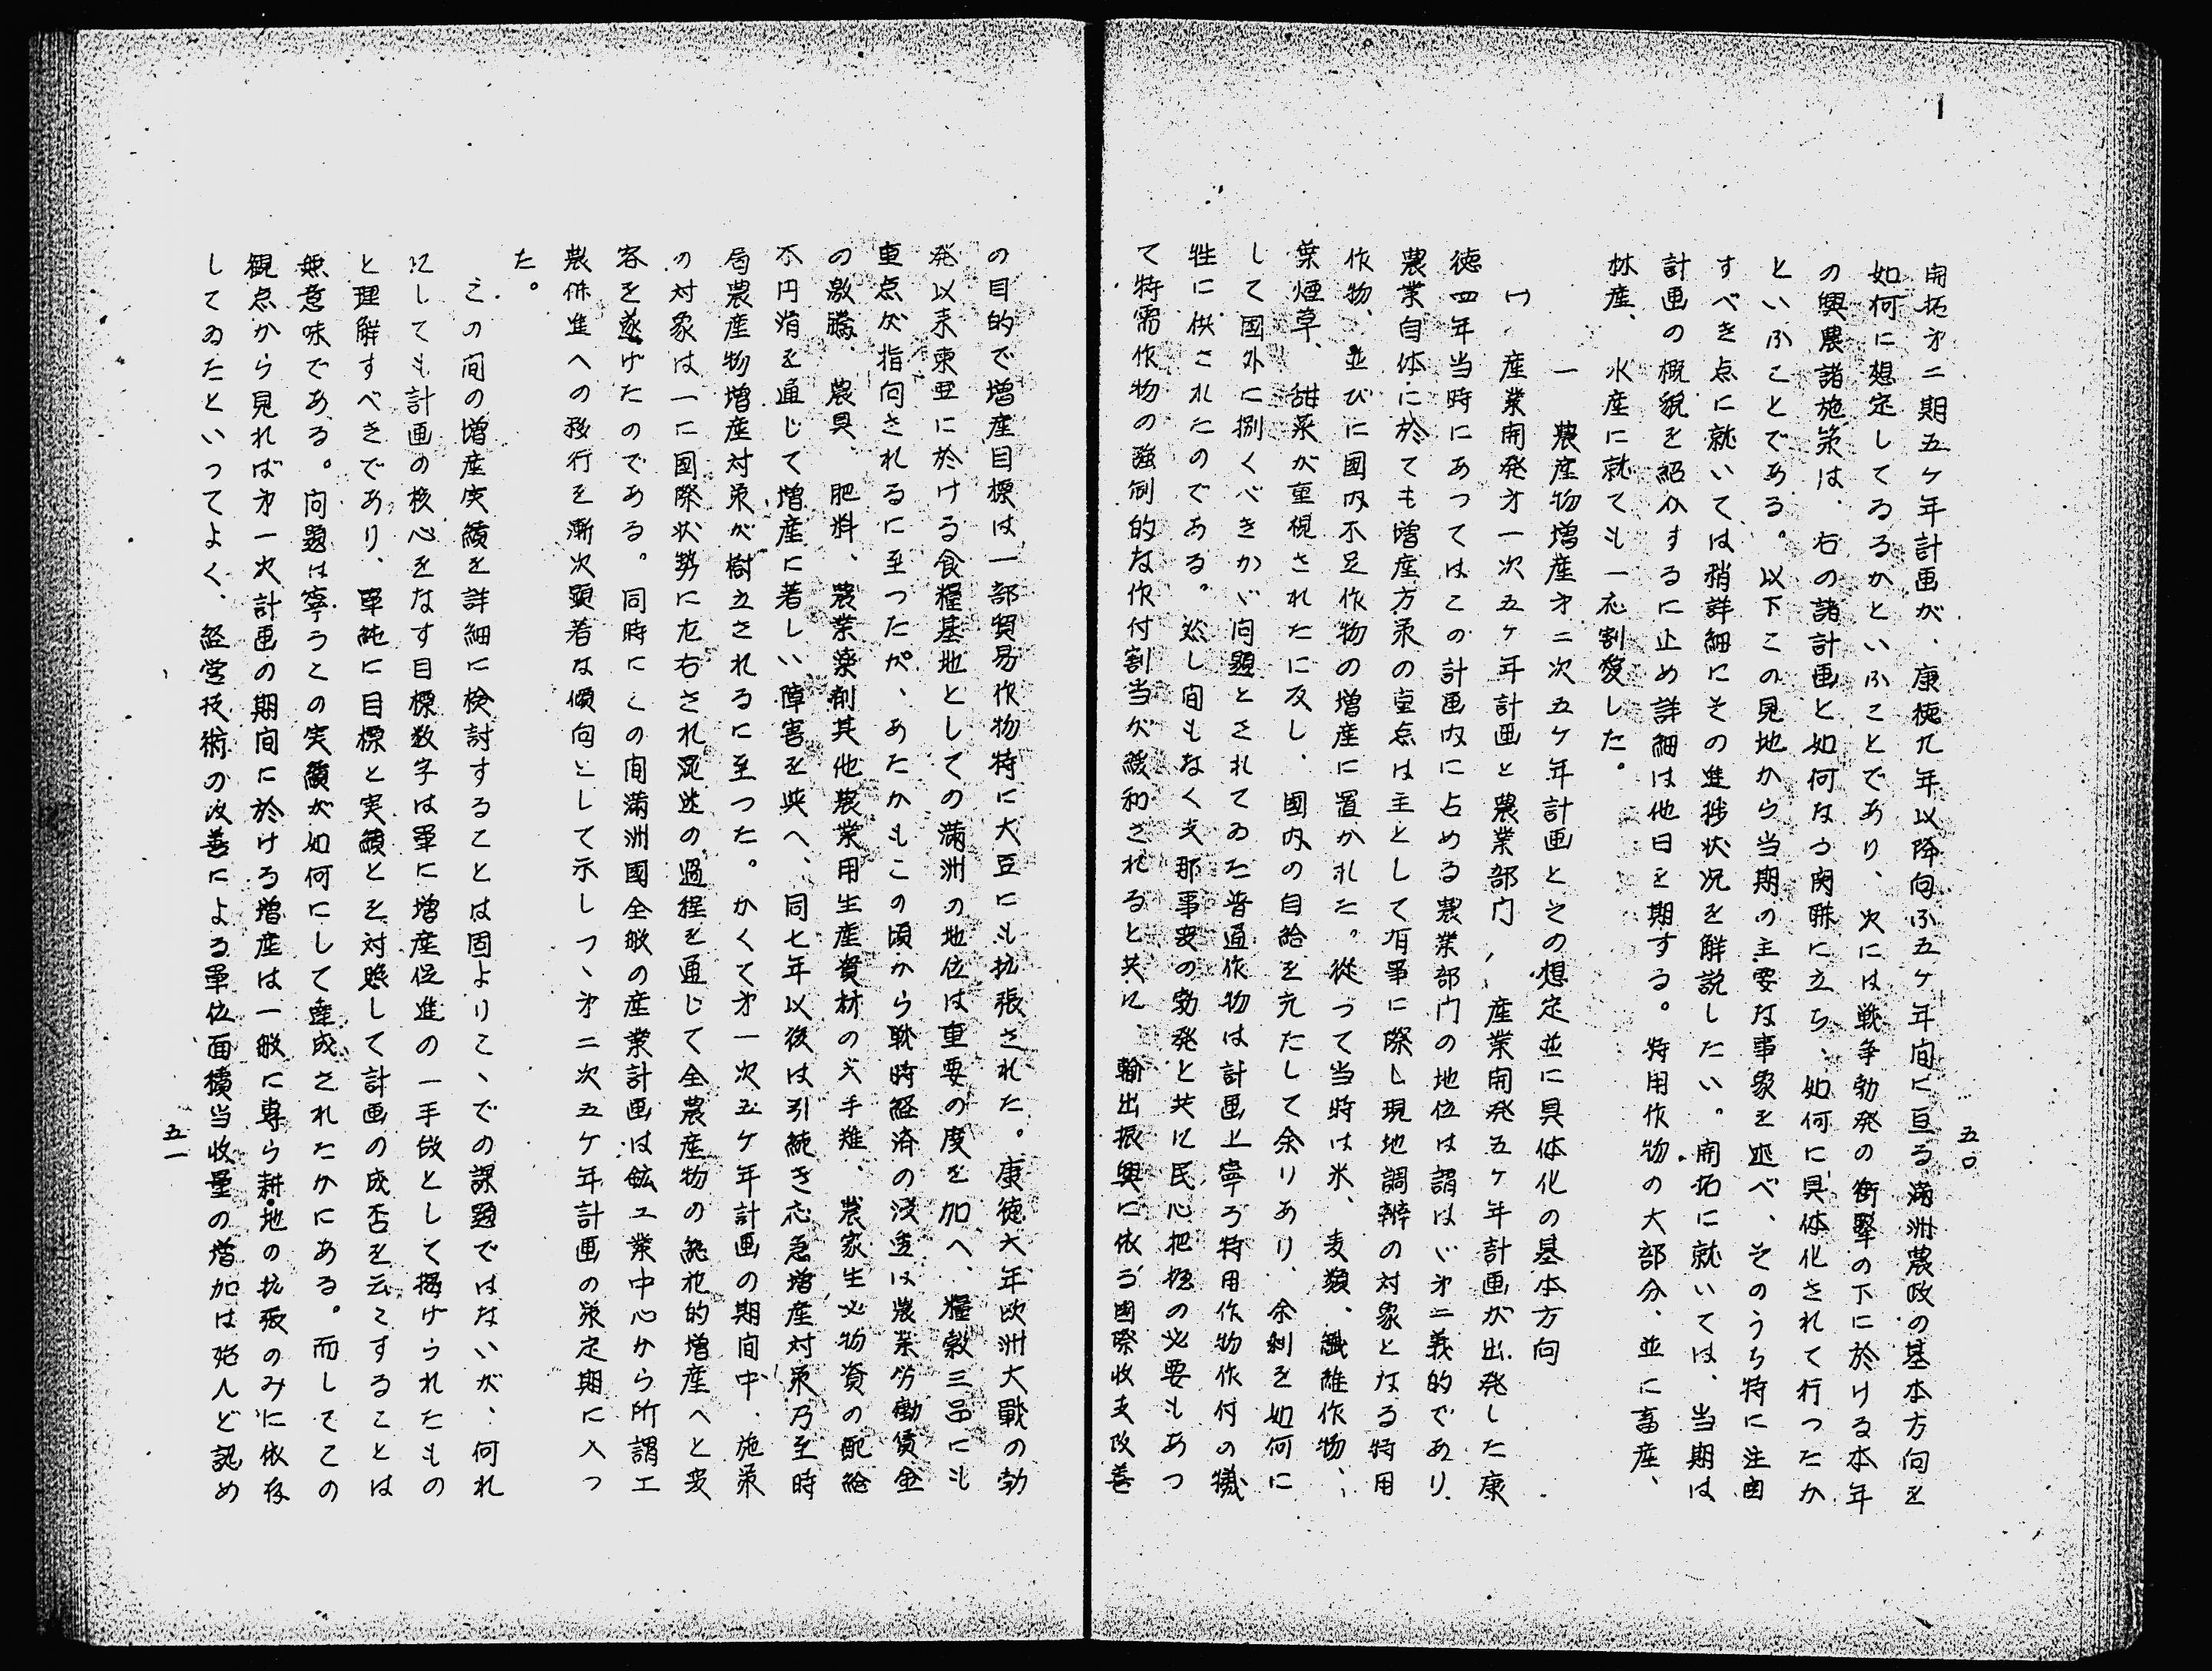 五〇
開拓才二期五ケ年計画が、康徳九年以降向ふ五ケ年間に亘る満洲農政の基本方向を
如何に想定してゐるかといふことであり、次には戦争勃発の衝撃の下に於ける本年
の興農諸施策は、右の諸計画と如何なる関聯に立ち、如何に具体化されて行つたか
といふことである。以下この見地から当期の主要な事象を述べ、そのうち特に注目
すべき点に就いては稍詳細にその進捗状況を解説したい。開拓に就いては、当期は
計画の概貌を紹介するに止め詳細は他日を期する。特用作物の大部分、並に畜産、
林産、水産に就ても一応割愛した。
一 農産物増産才二次五ケ年計画とその想定並に具体化の基本方向
(一) 産業開発才一次五ケ年計画と農業部門 産業開発五ケ年計画が出発した康
徳四年当時にあつてはこの計画内に占める農業部門の地位は謂はゞ才二義的であり、
農業自体に於ても増産方策の重点は主として有事に際し現地調辨の対象となる特用
作物、並びに国内不足作物の増産に置かれた。従つて当時は米、麦類、繊維作物、
葉煙草、甜菜が重視されたに反し、國内の自給を充たして余りあり、余剰を如何に
して国外に捌くべきかゞ問題とされてゐた普通作物は計画上寧ろ特用作物作付の犠
牲に供されたのである。然し間もなく支那事変の勃発と共に民心把握の必要もあつ
て特需作物の強制的な作付割当が緩和されると共に、輸出振興に依る國際收支改善
の目的で増産目標は一部貿易作物特に大豆にも拡張された。康徳六年欧洲大戰の勃
発以来東亜に於ける食糧基地としての満洲の地位は重要の度を加へ、糧穀三品にも
重点が指向されるに至つたが、あたかもこの頃から戦時経済の浸透は農業労働賃金
の激騰、農具、肥料、農業薬剤其他農業用生産資材の入手難、農家生必物資の配給
不円滑を通じて増産に著しい障害を與へ、同七年以後は引続き応急増産対策乃至時
局農産物増産対策が樹立されるに至つた。かくて才一次五ケ年計画の期間中、施策
の対象は一に國際状勢に左右され混迷の過程を通じて全農産物の総花的増産へと変
容を遂げたのである。同時にこの間満洲國全般の産業計画は鉱工業中心から所謂工
農併進への移行を漸次顕著な傾向として示しつゝ才二次五ケ年計画の策定期に入つ
た。
この間の増産実績を詳細に検討することは固よりこゝでの課題ではないが、何れ
にしても計画の核心をなす目標数字は單に増産促進の一手段として掲げられたもの
と理解すべきであり、單純に目標と実績とを対照して計画の成否を云々することは
無意味である。問題は寧ろこの実績が如何にして達成されたかにある。而してこの
観点から見れば才一次計画の期間に於ける増産は一般に専ら耕地の拡張のみに依存
してゐたといつてよく、経営技術の改善による單位面積当收量の増加は殆んど認め
五一